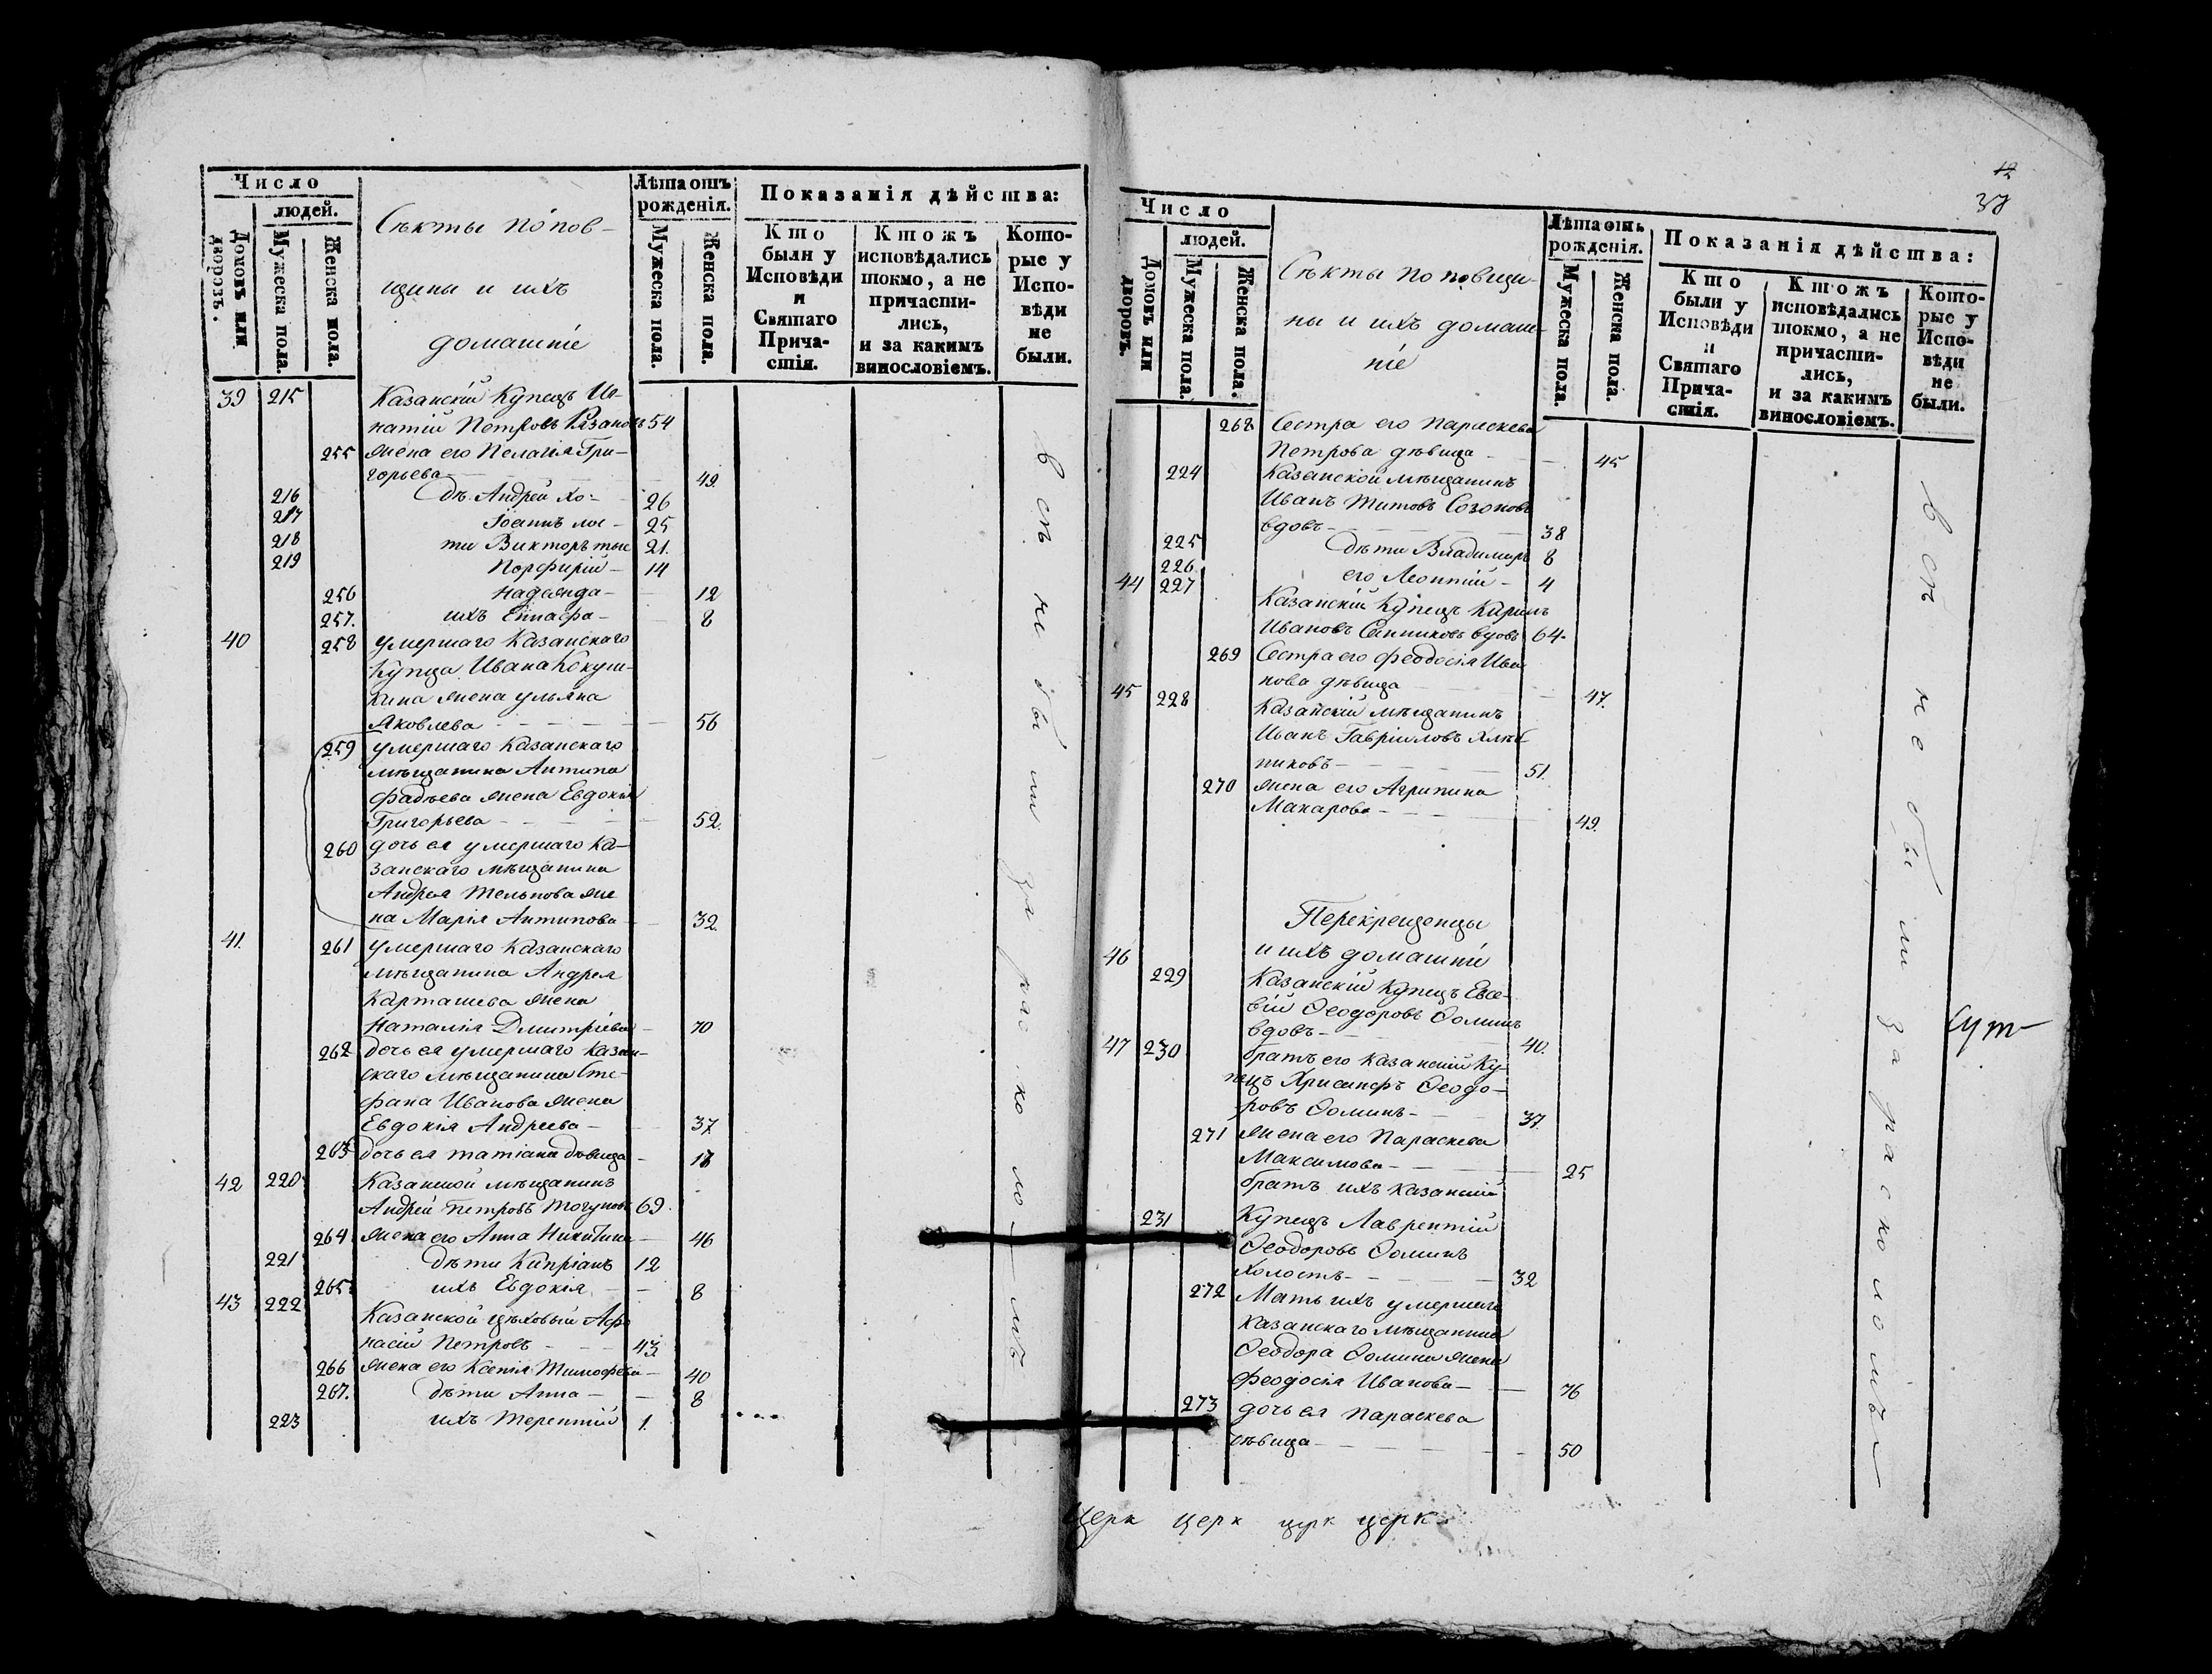 Число
людей.
Домовъ или дворовъ.
Мужеска пола.
Женска пола.
Секты попов-
щины и ихъ
домашніе
Лѣта отъ рожденія.
Мужеска пола.
Женска пола.
Показанія дѣйства:
Кто были у Исповѣди и Святаго Прича-стія.
Ктожъ исповѣдались токмо, а не причасти-лись, и за какимъ винословіемъ.
Кото-рые у Испо-вѣди не были.
39 215 Казанскій Купецъ Иг-
натій Петровъ Рязановъ 54
255 жена его Пелагія Гри-
горьева 49.
216 дѣ Андрей хо- 26
217 Іоаннъ лос- 25
218 ти Викторъ тые 21.
219 Порфирій 14
256 Надежда 12
257. ихъ Епнафа 8
40 258 умершаго Казанскаго
Купца Ивана Кокуш-
кина жена ульяна
Яковлева 56
259 умершаго Казанскаго
мѣщанина Антипа
Фадѣева жена Евдокія
Григорьева 52.
260 дочь ея умершаго Ка-
занскаго мѣщанина
Андрея Тельнова же
на Марія Антипова 32.
41. 261 умершаго Казанскаго
мѣщанина Андрея
Карташева жена
Наталія Дмитріева 70
262 дочь ея умершаго Казан-
скаго мѣщанина Сте-
фана Иванова жена
Евдокія Андреева 37
263 дочь ея татіана дѣвица
42 220 Казанской мѣщанинъ
Андрей Петровъ 69.
264 жена его Анна Никитина 46
221 дѣти Кипріанъ 12
265 ихъ Евдокія 8
43 222 Казанской цѣховый Афа
насій Петровъ 43
266 жена его Ксенія Тимофева 40
267. дѣти Анна 8
223 ихъ Терентій 1.
всѣ не были за расколомъ
12
37
Число
людей.
Домовъ или дворовъ.
Мужеска пола.
Женска пола.
Секты поповщи-
ны и ихъ домаш-
ніе
Лѣта отъ рожденія.
Мужеска пола.
Женска пола.
Показанія дѣйства:
Кто были у Исповѣди и Святаго Прича-стія.
Ктожъ исповѣдались токмо, а не причасти-лись, и за какимъ винословіемъ.
Кото-рые у Испо-вѣди не были.
268 Сестра его Параскева
Петрова дѣвица 45
224 Казанской мѣщанинъ
Иванъ Титовъ Созоновъ
вдовъ 38
225 дѣти Владимиръ 8
226 его Леонтій 4
44 227 Казанскій Купецъ Кирилъ
Ивановъ Санниковъ вдовъ 64
269 Сестра его феодосія Ива
нова дѣвица 47.
45 228 Казанскій мѣщанинъ
Иванъ Гавріиловъ Хлѣб-
никовъ 51.
270 жена его Агрипина
Макарова 49.
Перекрещенцы
и ихъ домашніи
46 229 Казанскій Купецъ Евсе-
вій Ѳеодоровъ Ѳоминъ
вдовъ 40.
47 230 братъ его Казанскій Ку-
пецъ Хрисанфъ Ѳеодо-
ровъ Ѳоминъ 37.
271 жена его Параскева
Максимова 25
братъ ихъ Казанскій
231 Купецъ Лаврентій
Ѳеодоровъ Ѳоминъ
холостъ 32
272 Мать ихъ умершаго
Казанскаго мѣщанина
Ѳеодора Ѳомина жена
феодосія Иванова 76
273 дочь ея Параскева
дѣвица 50
всѣ не были за расколомъ
церк церк церк церк